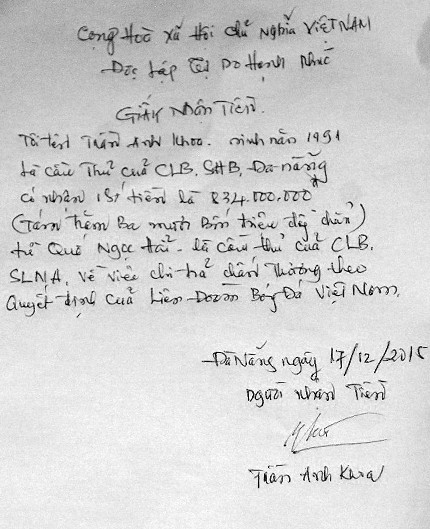 Cộng Hoà xã Hội chủ Nghĩa VIỆTNAM
Độc Lập Tự Do Hạnh Phúc
GIẤY NHẬN TIỀN.
Tôi tên Trần Anh Khoa. sinh năm 1991
là cầu thủ của CLB. SHB. Đà nẵng
có nhận số tiền là 834.000.000đ
(Tám trăm Ba mươi Bốn triệu đồng chẵn)
từ Quế Ngọc Hải - là cầu thủ của CLB.
SLNA. Về việc chi trả chấn thương theo
Quyết định của Liên Đoàn Bóng Đá Việt Nam.
Đà Nẵng ngày 17/12/2015
Người nhận Tiền
Trần Anh Khoa